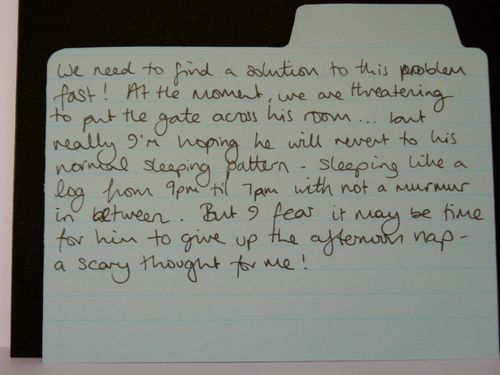 We need to find a solution to this problem
fast! At the moment, we are threatening
to put the gate across his room... but
really I'm hoping he will revert to his
normal sleeping pattern - sleeping like a
log from 9pm til 7pm with not a murmur
in between. But I fear it may be time
for him to give up the afternoon nap -
a scary thought for me!